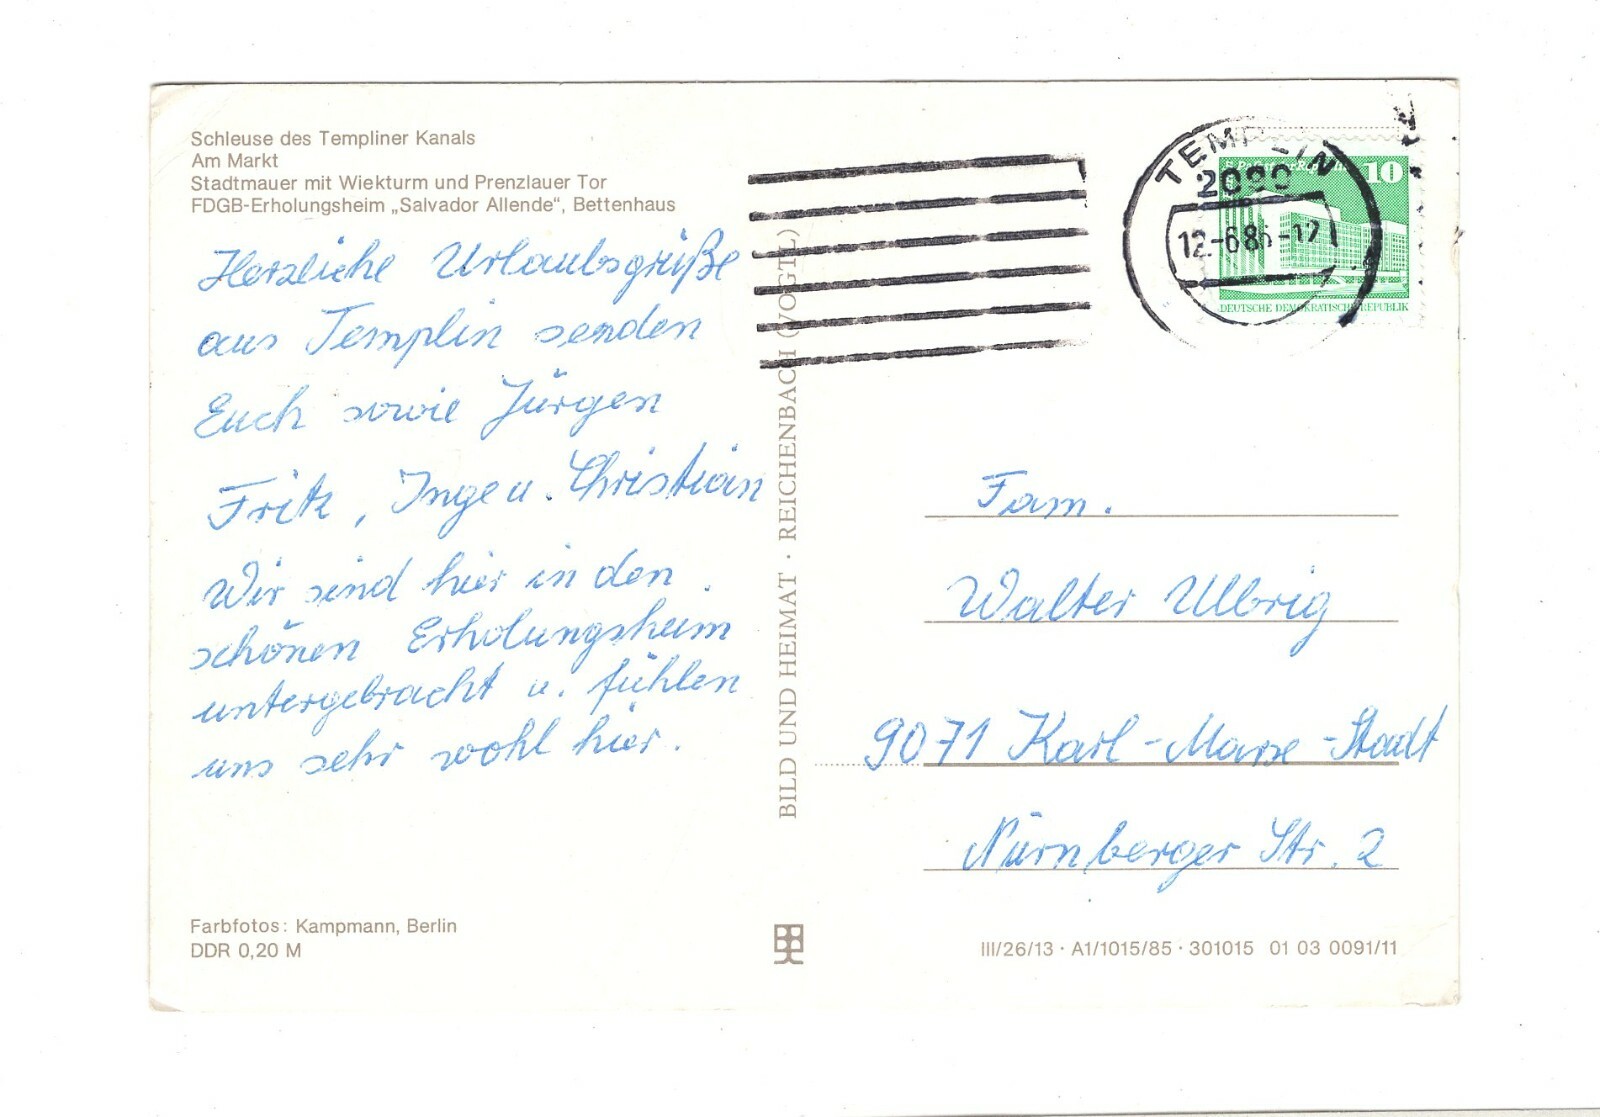 Schleuse des Templiner Kanals
Am Markt
Stadtmauer mit Wiekturm und Prenzlauer Tor
FDGB-Erholungsheim „Salvador Allende“, Bettenhaus
Herzliche Urlaubsgrüße
aus Templin senden
Euch sowie Jürgen
Fritz, Inge u. Christian
Wir sind hier in den
schönen Erholungsheim
untergebracht u. fühlen
uns sehr wohl hier.
Farbfotos: Kampmann, Berlin
DDR 0,20 M
BILD UND HEIMAT · REICHENBACH (VOGTL)
TEMPLIN
2090
12.-6.86-17
10
DEUTSCHE DEMOKRATISCHE REPUBLIK
Fam.
Walter Ulbrig
9071 Karl-Marx-Stadt
Nürnberger Str. 2
III/26/13 · A1/1015/85 · 301015 01 03 0091/11